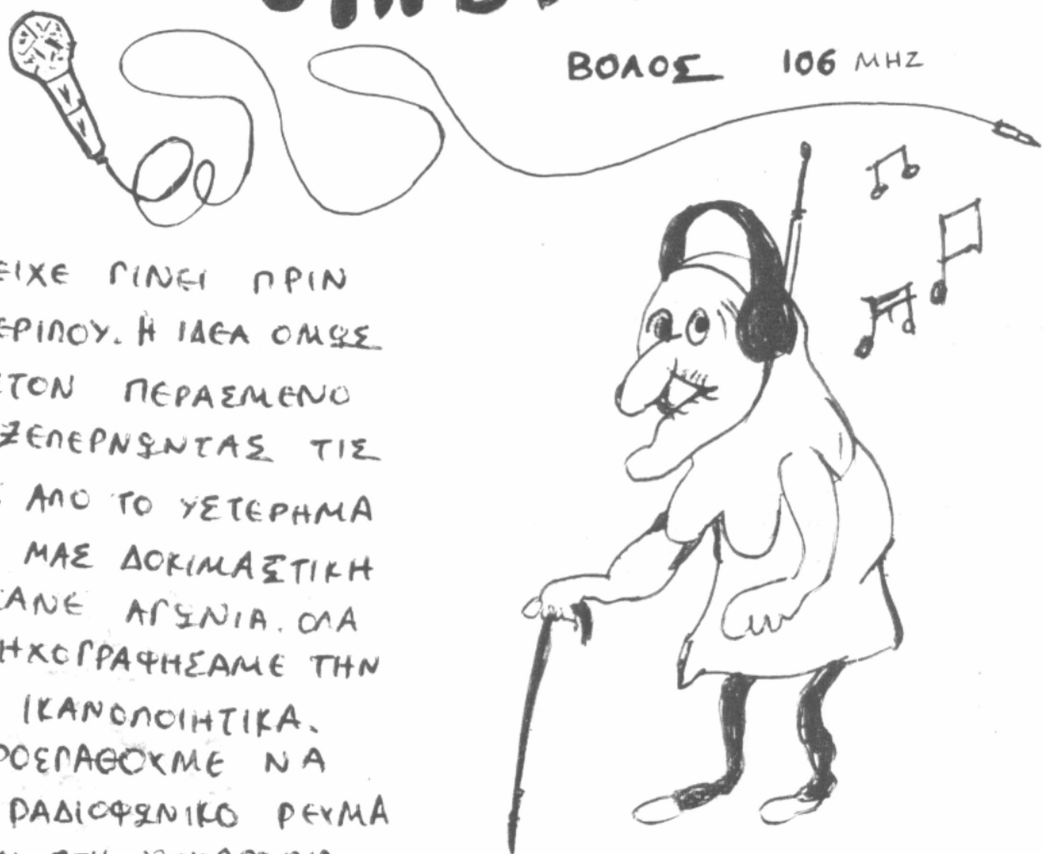 ΒΟΛΟΣ 106 MHZ
ΕΙΧΕ ΓΙΝΕΙ ΠΡΙΝ
ΕΡΙΠΟΥ. Η ΙΔΕΑ ΟΜΩΣ
ΣΤΟΝ ΠΕΡΑΣΜΕΝΟ
ΞΕΠΕΡΝΩΝΤΑΣ ΤΙΣ
ΑΠΟ ΤΟ ΥΣΤΕΡΗΜΑ
ΜΑΣ ΔΟΚΙΜΑΣΤΙΚΗ
ΚΑΝΕ ΑΓΩΝΙΑ. ΟΛΑ
ΗΧΟΓΡΑΦΗΣΑΜΕ ΤΗΝ
ΙΚΑΝΟΠΟΙΗΤΙΚΑ.
ΡΟΣΠΑΘΟΥΜΕ ΝΑ
ΡΑΔΙΟΦΩΝΙΚΟ ΡΕΥΜΑ